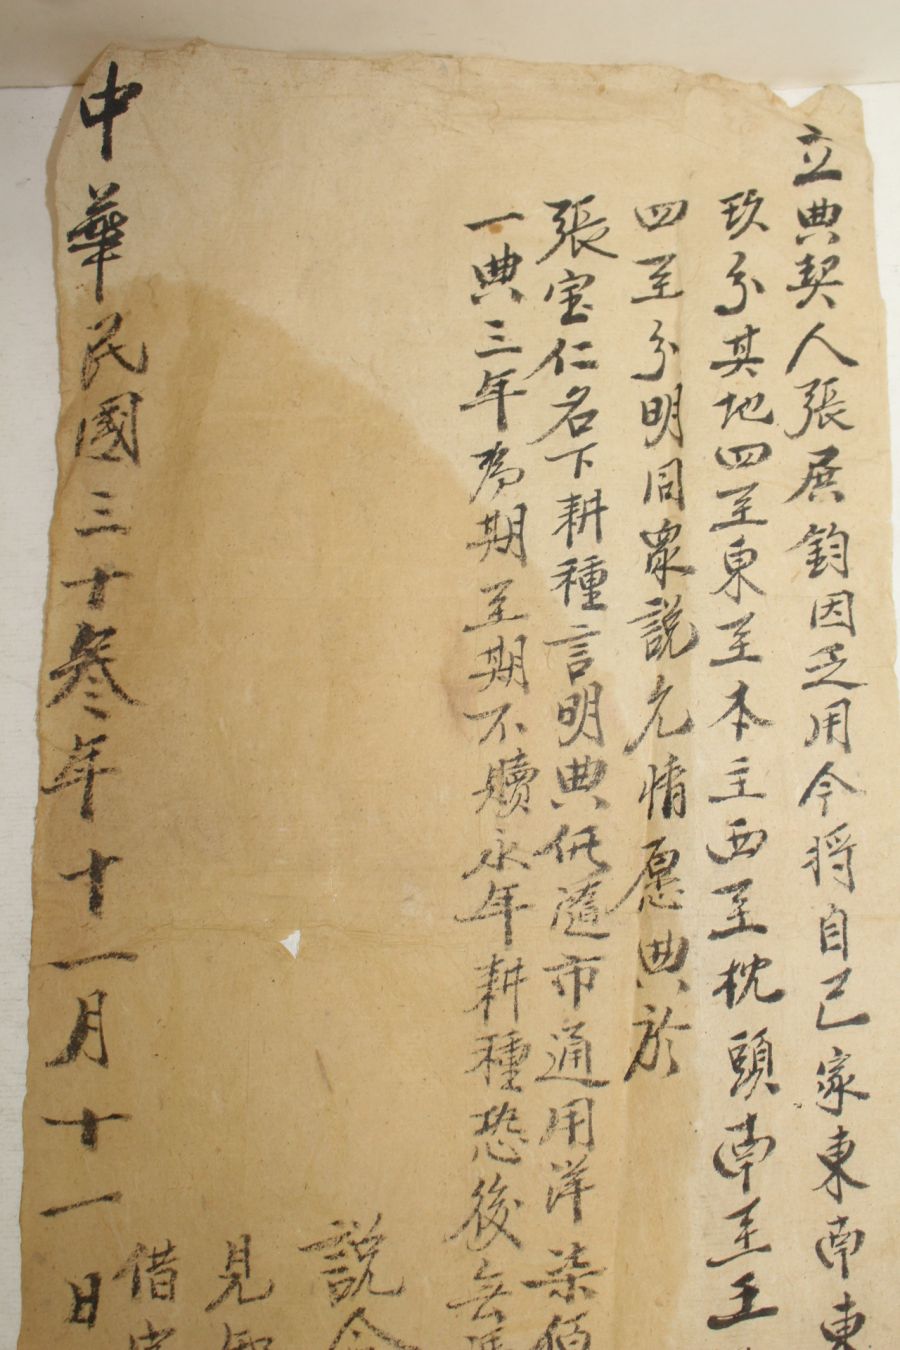 立典契人張展鈞因乏用今将自己家東南東
玖分其地四至東至本主西至枕頭南至王
四至分明同眾説允情愿典於
張宝仁名下耕種言明典価隨市通用洋柒佰
一典三年為期至期不贖永年耕種恐後無
説合
見
借
中華民國三十叁年十一月十一日